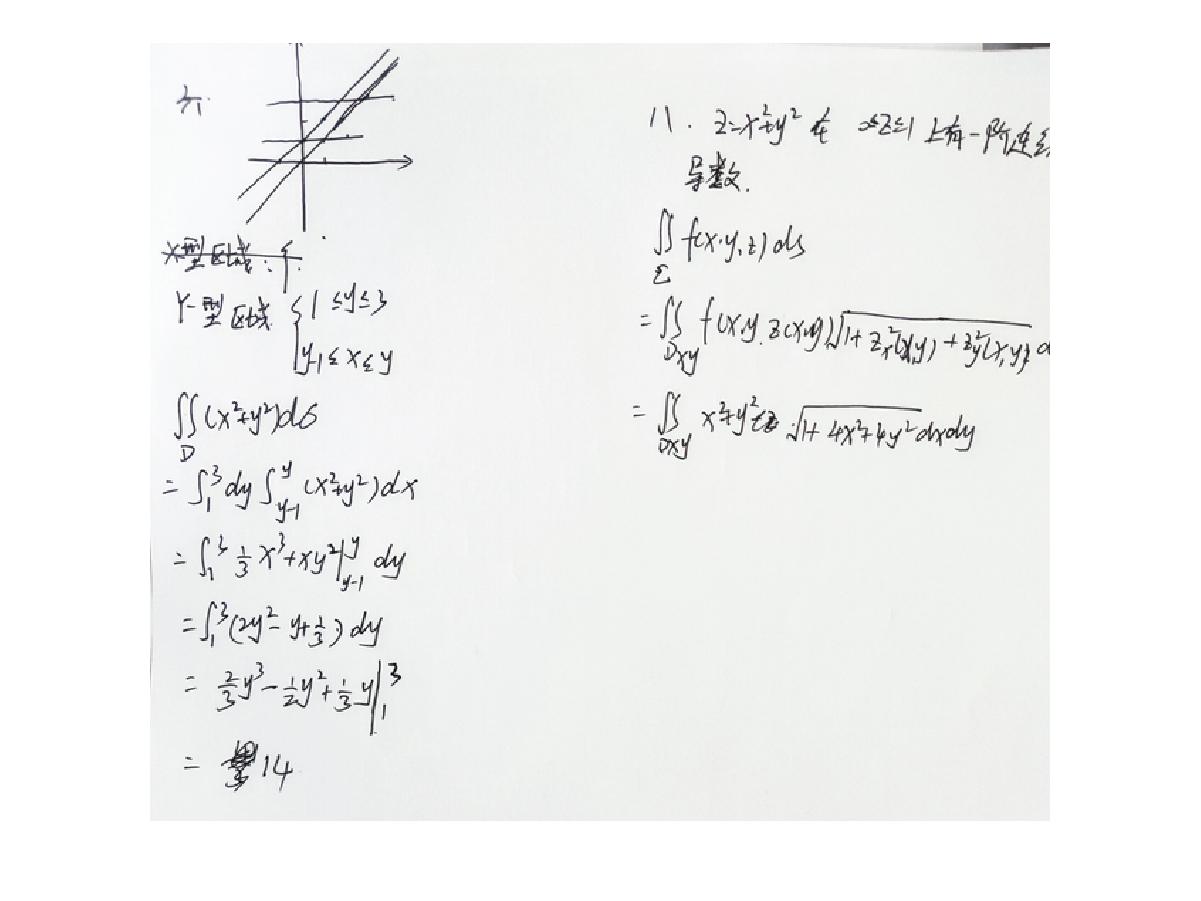 X型区域:{
Y-型区域 { 1≤y≤3
y-1≤x≤y
∬_D (x²+y²)dσ
= ∫₁³ dy ∫_{y-1}^{y} (x²+y²)dx
= ∫₁³ 1/3 x³+xy² |_{y-1}^{y} dy
= ∫₁³ (2y²-y+1/3) dy
= 2/3 y³ - 1/2 y² + 1/3 y |₁³
= 14
八. z=x²+y² 在 0≤z≤1 上有一阶连
导数.
∬_Σ f(x,y,z) ds
= ∬_{Dxy} f(x,y,z(x,y)) √(1+z_x²(x,y)+z_y²(x,y)) d
= ∬_{Dxy} x²+y² √(1+4x²+4y²) dxdy